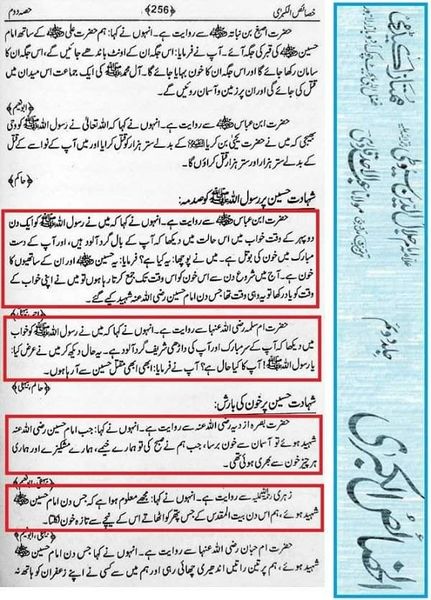 خصائص الکبریٰ ﴿256﴾ حصہ دوم
حضرت اصبغ بن نباتہ ؓ سے روایت ہے۔ انہوں نے کہا: ہم حضرت علی ؓ کے ساتھ امام
حسین ؓ کی قبر کی جگہ آئے۔ آپ نے فرمایا: اس جگہ ان کے اونٹ باندھے جائیں گے، اس جگہ ان کا
سامان رکھا جائے گا اور اس جگہ ان کا خون بہایا جائے گا۔ آل محمد ﷺ کی ایک جماعت اس میدان میں قتل
کی جائے گی اور ان پر زمین و آسمان روئیں گے۔
﴿ابونعیم﴾
حضرت ابن عباس ؓ سے روایت ہے۔ انہوں نے کہا کہ اللہ تعالیٰ نے رسول اللہ ﷺ کو وحی
بھیجی کہ میں نے حضرت یحییٰ بن زکریا کے بدلے ستر ہزار کو قتل کرایا اور میں آپ کے نواسے کے قتل
کے بدلے ستر ہزار اور ستر ہزار قتل کراؤں گا۔
﴿حاکم﴾
شہادت حسین پر رسول اللہ ﷺ کو صدمہ:
حضرت ابن عباس ؓ سے روایت ہے۔ انہوں نے کہا کہ میں نے رسول اللہ ﷺ کو ایک دن
دوپہر کے وقت خواب میں اس حالت میں دیکھا کہ آپ کے بال گرد آلود ہیں، اور آپ کے دست
مبارک میں خون کی بوتل ہے۔ میں نے پوچھا: یہ کیا ہے؟ فرمایا: یہ حسین ؓ اور ان کے ساتھیوں کا
خون ہے۔ آج میں شروع دن سے اس خون کو اس وقت تک جمع کرتا رہا ہوں تو میں نے اپنی خواب کے
وقت کو یاد رکھا تو یہ وہی وقت تھا جس دن امام حسین رضی اللہ عنہ شہید کیے گئے۔
﴿احمد، بیہقی﴾
حضرت ام سلمہ رضی اللہ عنہا سے روایت ہے۔ انہوں نے کہا کہ میں نے رسول اللہ ﷺ کو خواب
میں دیکھا کہ آپ کے سر مبارک اور آپ کی داڑھی شریف گرد آلود ہے۔ یہ حال دیکھ کر میں نے عرض کیا:
یا رسول اللہ ﷺ! آپ کا کیا حال ہے؟ آپ نے فرمایا: ابھی ابھی مقتل حسین سے آ رہا ہوں۔
﴿حاکم، بیہقی﴾
شہادت حسین پر خون کی بارش:
حضرت بصرہ ازدیہ رضی اللہ عنہ سے روایت ہے۔ انہوں نے کہا: جب امام حسین رضی اللہ عنہ
شہید ہوئے تو آسمان سے خون برسا، جب ہم نے صبح کی تو ہمارے خیمے، ہمارے مشکیزے اور ہماری
ہر چیز خون سے بھری ہوئی تھی۔
﴿بیہقی، ابونعیم﴾
زہری ؒ سے روایت ہے۔ انہوں نے کہا: مجھے معلوم ہوا ہے کہ جس دن امام حسین ؓ
شہید ہوئے، ہم اس دن بیت المقدس کے جس پتھر کو اٹھاتے اس کے نیچے سے تازہ خون نکلتا۔
﴿بیہقی، ابونعیم﴾
حضرت ام حبان رضی اللہ عنہا سے روایت ہے۔ انہوں نے کہا: جس دن امام حسین ؓ
شہید ہوئے، ہم پر تین راتیں اندھیری چھائی رہی اور ہم میں سے کسی نے اپنے زعفران کو ہاتھ نہ
الخصائص الکبریٰ
جلد دوم
علامہ جلال الدین سیوطی